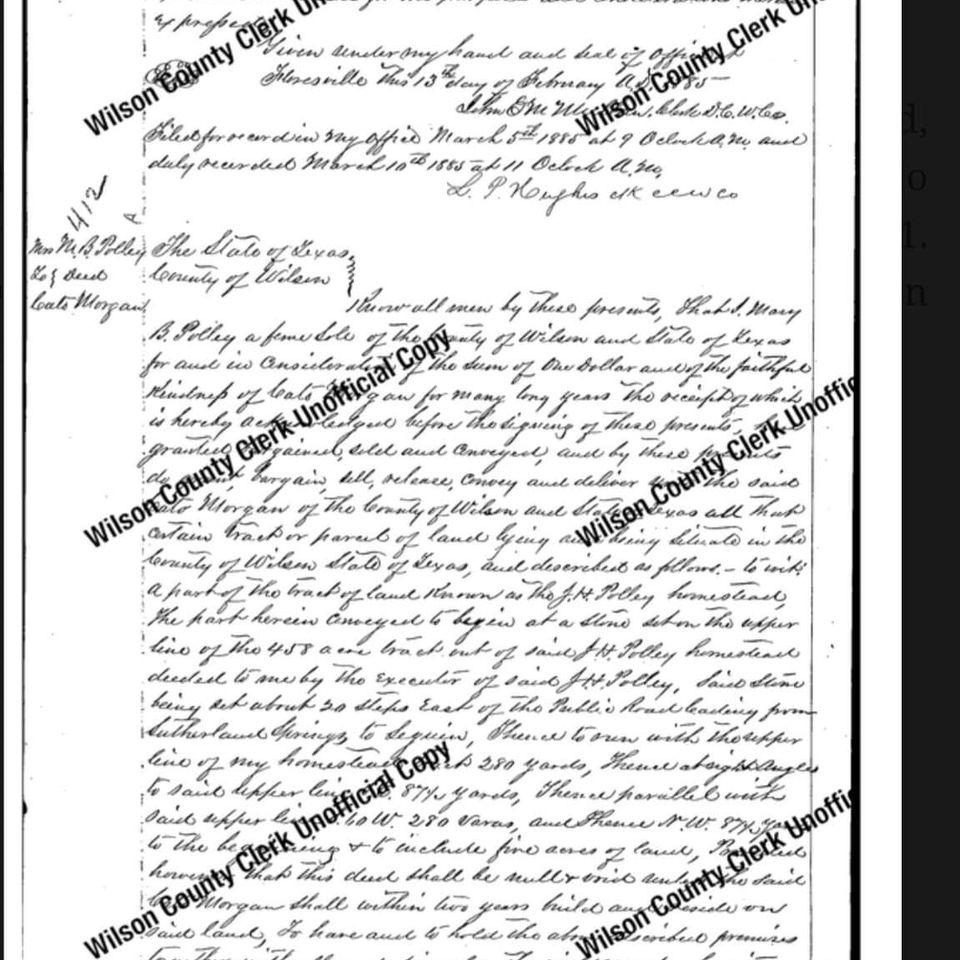 Expressed
Given under my hand and seal of office at
Floresville this 13th day of February A.D. 1885
Clerk D.C.W.Co.
Filed for record in my office March 5th 1885 at 9 Oclock A.M. and
duly recorded March 10th 1885 at 11 Oclock A.M.
L. P. Hughes clk ccwco
412
Mrs M. B. Polley
To } Deed
Cato Morgan
The State of Texas
County of Wilson
Know all men by these presents, That I, Mary
B. Polley a feme sole of the County of Wilson and State of Texas
for and in Consideration of the sum of One Dollar and of the faithful
Kindness of Cato Morgan for many long years the receipt of which
is hereby acknowledged before the signing of these presents,
granted, bargained, sold and conveyed, and by these presents
do grant, bargain, sell, release, convey and deliver unto the said
Cato Morgan of the County of Wilson and State of Texas all that
certain tract or parcel of land lying and being situate in the
County of Wilson State of Texas, and described as follows. - to wit:
a part of the tract of land Known as the J.H. Polley homestead,
The part herein conveyed to begin at a Stone set on the upper
line of the 458 acre tract out of said J.H. Polley homestead
deeded to me by the Executor of said J.H. Polley, Said Stone
being set about 20 steps East of the Public Road leading from
Sutherland Springs to Seguin, Thence to run with the upper
line of my homestead 280 yards, Thence at right angles
to said upper line 87½ yards, Thence parallel with
said upper line S. 60 W. 280 varas, and Thence N.W. 87½ yards
to the beginning & to include five acres of land, Provided
however that this deed shall be null & void unless the said
Cato Morgan shall within two years build and reside on
said land, To have and to hold the above described premises
Wilson County Clerk Unofficial Copy
Wilson County Clerk Unofficial Copy
Wilson County Clerk Unofficial Copy
Wilson County Clerk Unoffic
Wilson County Clerk Unoffic
Wilson County Clerk Unoffic
d,
o
1.
n